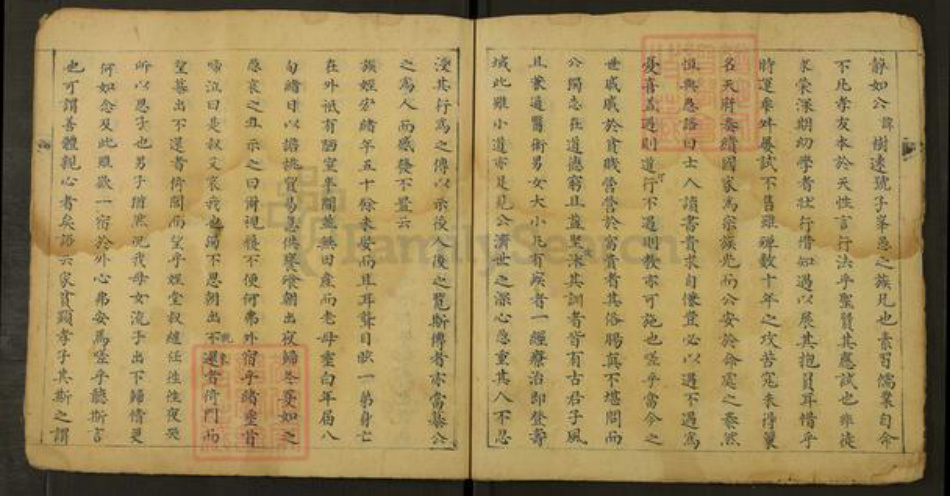 靜如公諱樹逵號子峯愚之族兄也素習儒業自命
不凡孝友本於天性言行法乎聖賢其應試也雖徒
求榮深期幼學者壯行惜知遇以展其抱負耳惜乎
時運乖舛屢試不售雖殫數十年之攻苦究未得業
名天府奏績國家為宗族光而公安於命處之泰然
恒與愚語曰士人讀書貴求自慊豈必以遇不遇為
憂喜哉遇則道行不遇則教亦可施也嗟乎當今之
世戚戚於貧賤營營於富貴者其俗腸真不堪問而
公獨志在道德窮且益堅沐其訓者皆有古君子風
且兼通醫術男女大小凡有疾者一經療治即登壽
域此雖小道亦足見公濟世之深心愚重其人不忍
沒其行為之傳以示後人後之覽斯傳者亦當慕公
之為人而感發不置云
族姪宏緒年五十餘未娶而且耳聾目眇一弟身亡
在外祗有陋室半間並無田產而老母壹白年屆八
旬緒日以擔挑貿易愚供饔飧朝出夜歸冬夏如之
愚哀之丑示之曰爾視履不便何弗外宿乎緒垂首
啼泣曰是叔父哀我也獨不思朝出不還者倚門而
望暮出不還者倚閭而望乎姪堂叔纘任往往夜哭
所以思子也男子猶然況我母女流子出不歸情更
何如念及此雖欲一宿於外心弗安焉嗟乎聽斯言
也可謂善體親心者矣語云家貧顯孝子其斯之謂